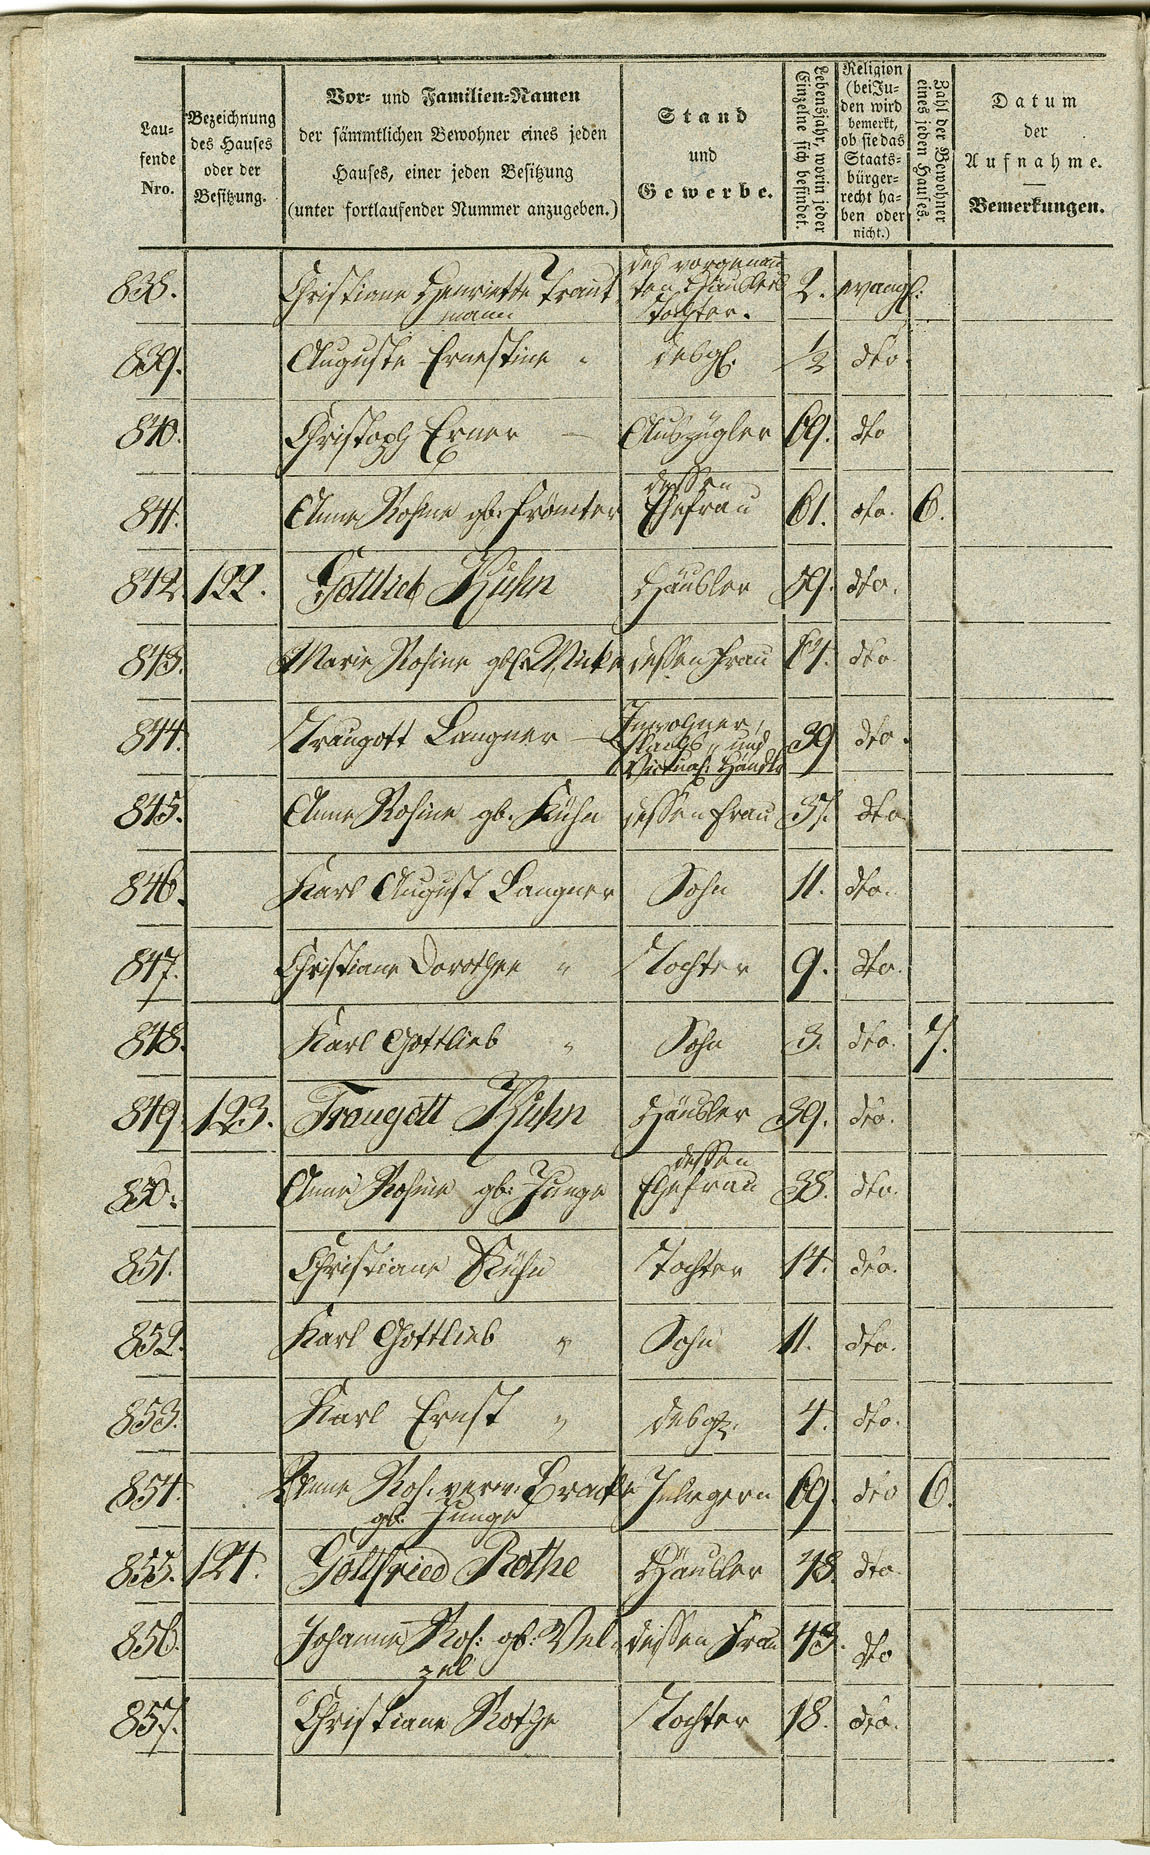 Lau-
fende
Nro.
Bezeichnung
des Hauses
oder der
Besitzung.
Vor- und Familien-Namen
der sämmtlichen Bewohner eines jeden
Hauses, einer jeden Besitzung
(unter fortlaufender Nummer anzugeben.)
Stand
und
Gewerbe.
Lebensjahr, worin jeder
Einzelne sich befindet.
Religion
(bei Ju-
den wird
bemerkt,
ob sie das
Staats-
bürger-
recht ha-
ben oder
nicht.)
Zahl der Bewohner
eines jeden Hauses.
Datum
der
Aufnahme.
Bemerkungen.
838. Christiane Henriette Traut- des vorgenan- 2. evangl:
mann ten Häuslers
Tochter.
839. Auguste Ernestine " desgl. ½ dto.
840. Christoph Exner — Auszügler 69. dto
841. Anne Rosine gb. Frömter dessen 61. dto. 6.
Ehefrau
842. 122. Gottlieb Kühn Häusler 59. dto.
843. Marie Rosine gb. Micke dessen Frau dto.
844. Traugott Langner — Inwohner, 39 dto.
und
Victual: Händler
845. Anne Rosine gb. Kühn dessen Frau 37. dto.
846. Karl August Langner Sohn 11. dto.
847. Christiane Dorothee " Tochter 9. dto.
848. Karl Gottlieb " Sohn 3. dto. 7.
849. 123. Traugott Kühn Häusler 39. dto.
850. Anne Rosine gb: Junge dessen 38. dto.
Ehefrau
851. Christiane Kühn Tochter 14. dto.
852. Karl Gottlieb " Sohn 11. dto.
853. Karl Ernst " desgl. 4. dto.
854. Anne Ros. verw. 69. dto 6.
gb. Junge
855. 124. Gottfried Rothe Häusler 48. dto.
856. Johanne Ros: gb: Wel- dessen Frau 43. dto
zel
857. Christiane Rothe Tochter 18. dto.